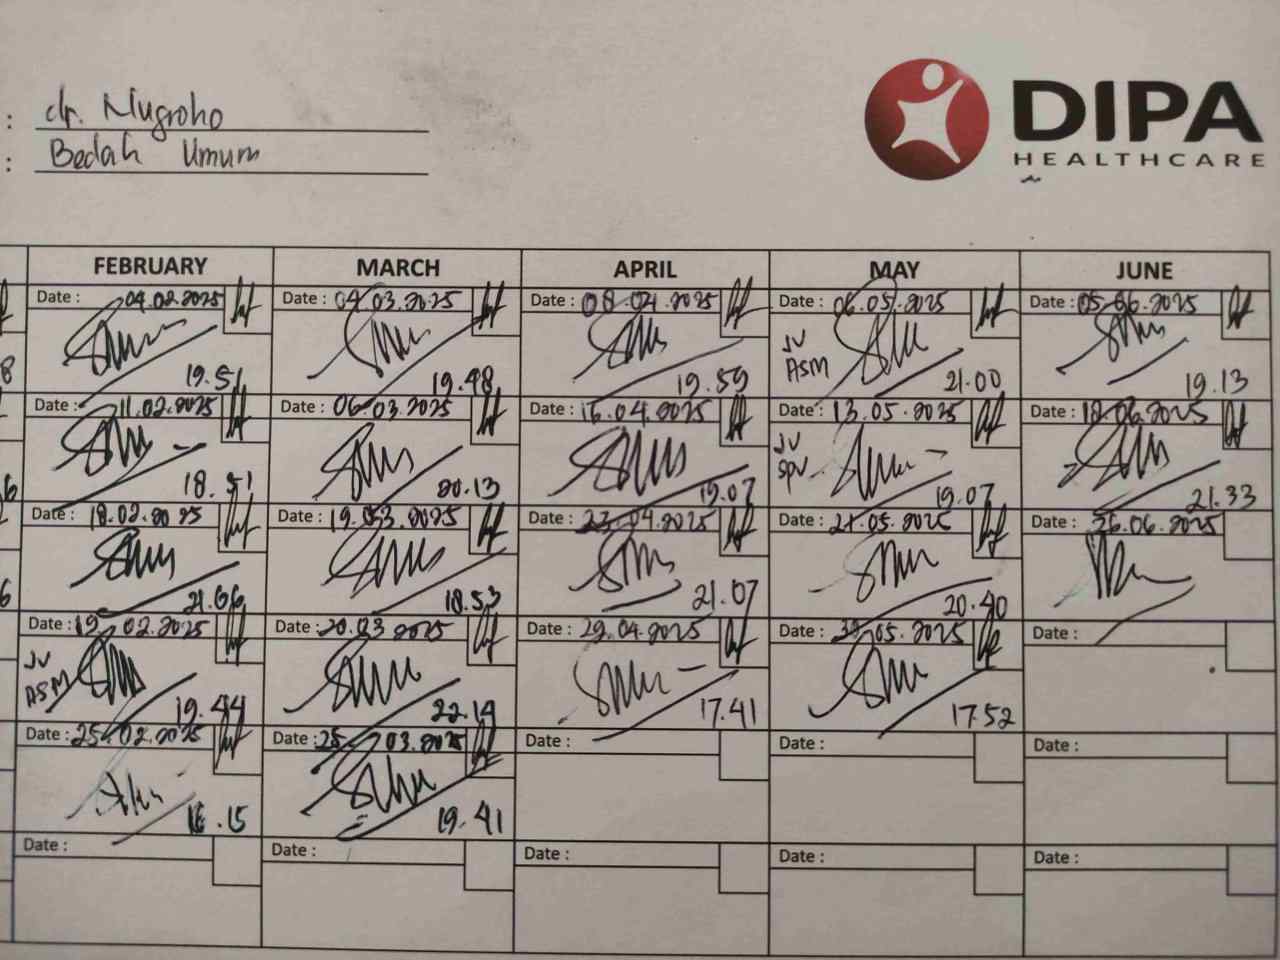 : dr. Nugroho
: Bedah Umum
DIPA
HEALTHCARE
FEBRUARY MARCH APRIL MAY JUNE
Date : 04.02.2025 Date : 04.03.2025 Date : 08.04.2025 Date : 06.05.2025 Date : 05.06.2025
JV
ASM
8 19.51 19.48 19.59 21.00 19.13
Date : 11.02.2025 Date : 06.03.2025 Date : 16.04.2025 Date : 13.05.2025 Date : 18.06.2025
JV
SPV
6 18.51 20.13 19.07 19.07 21.33
Date : 18.02.2025 Date : 19.03.2025 Date : 23.04.2025 Date : 21.05.2025 Date : 26.06.2025
6 21.06 18.53 21.07 20.40
Date : 19.02.2025 Date : 20.03.2025 Date : 29.04.2025 Date : .05.2025 Date :
JV
ASM
19.44 22.19 17.41 17.52
Date : 25.02.2025 Date : 25.03.2025 Date : Date : Date :
16.15 19.41
Date : Date : Date : Date : Date :